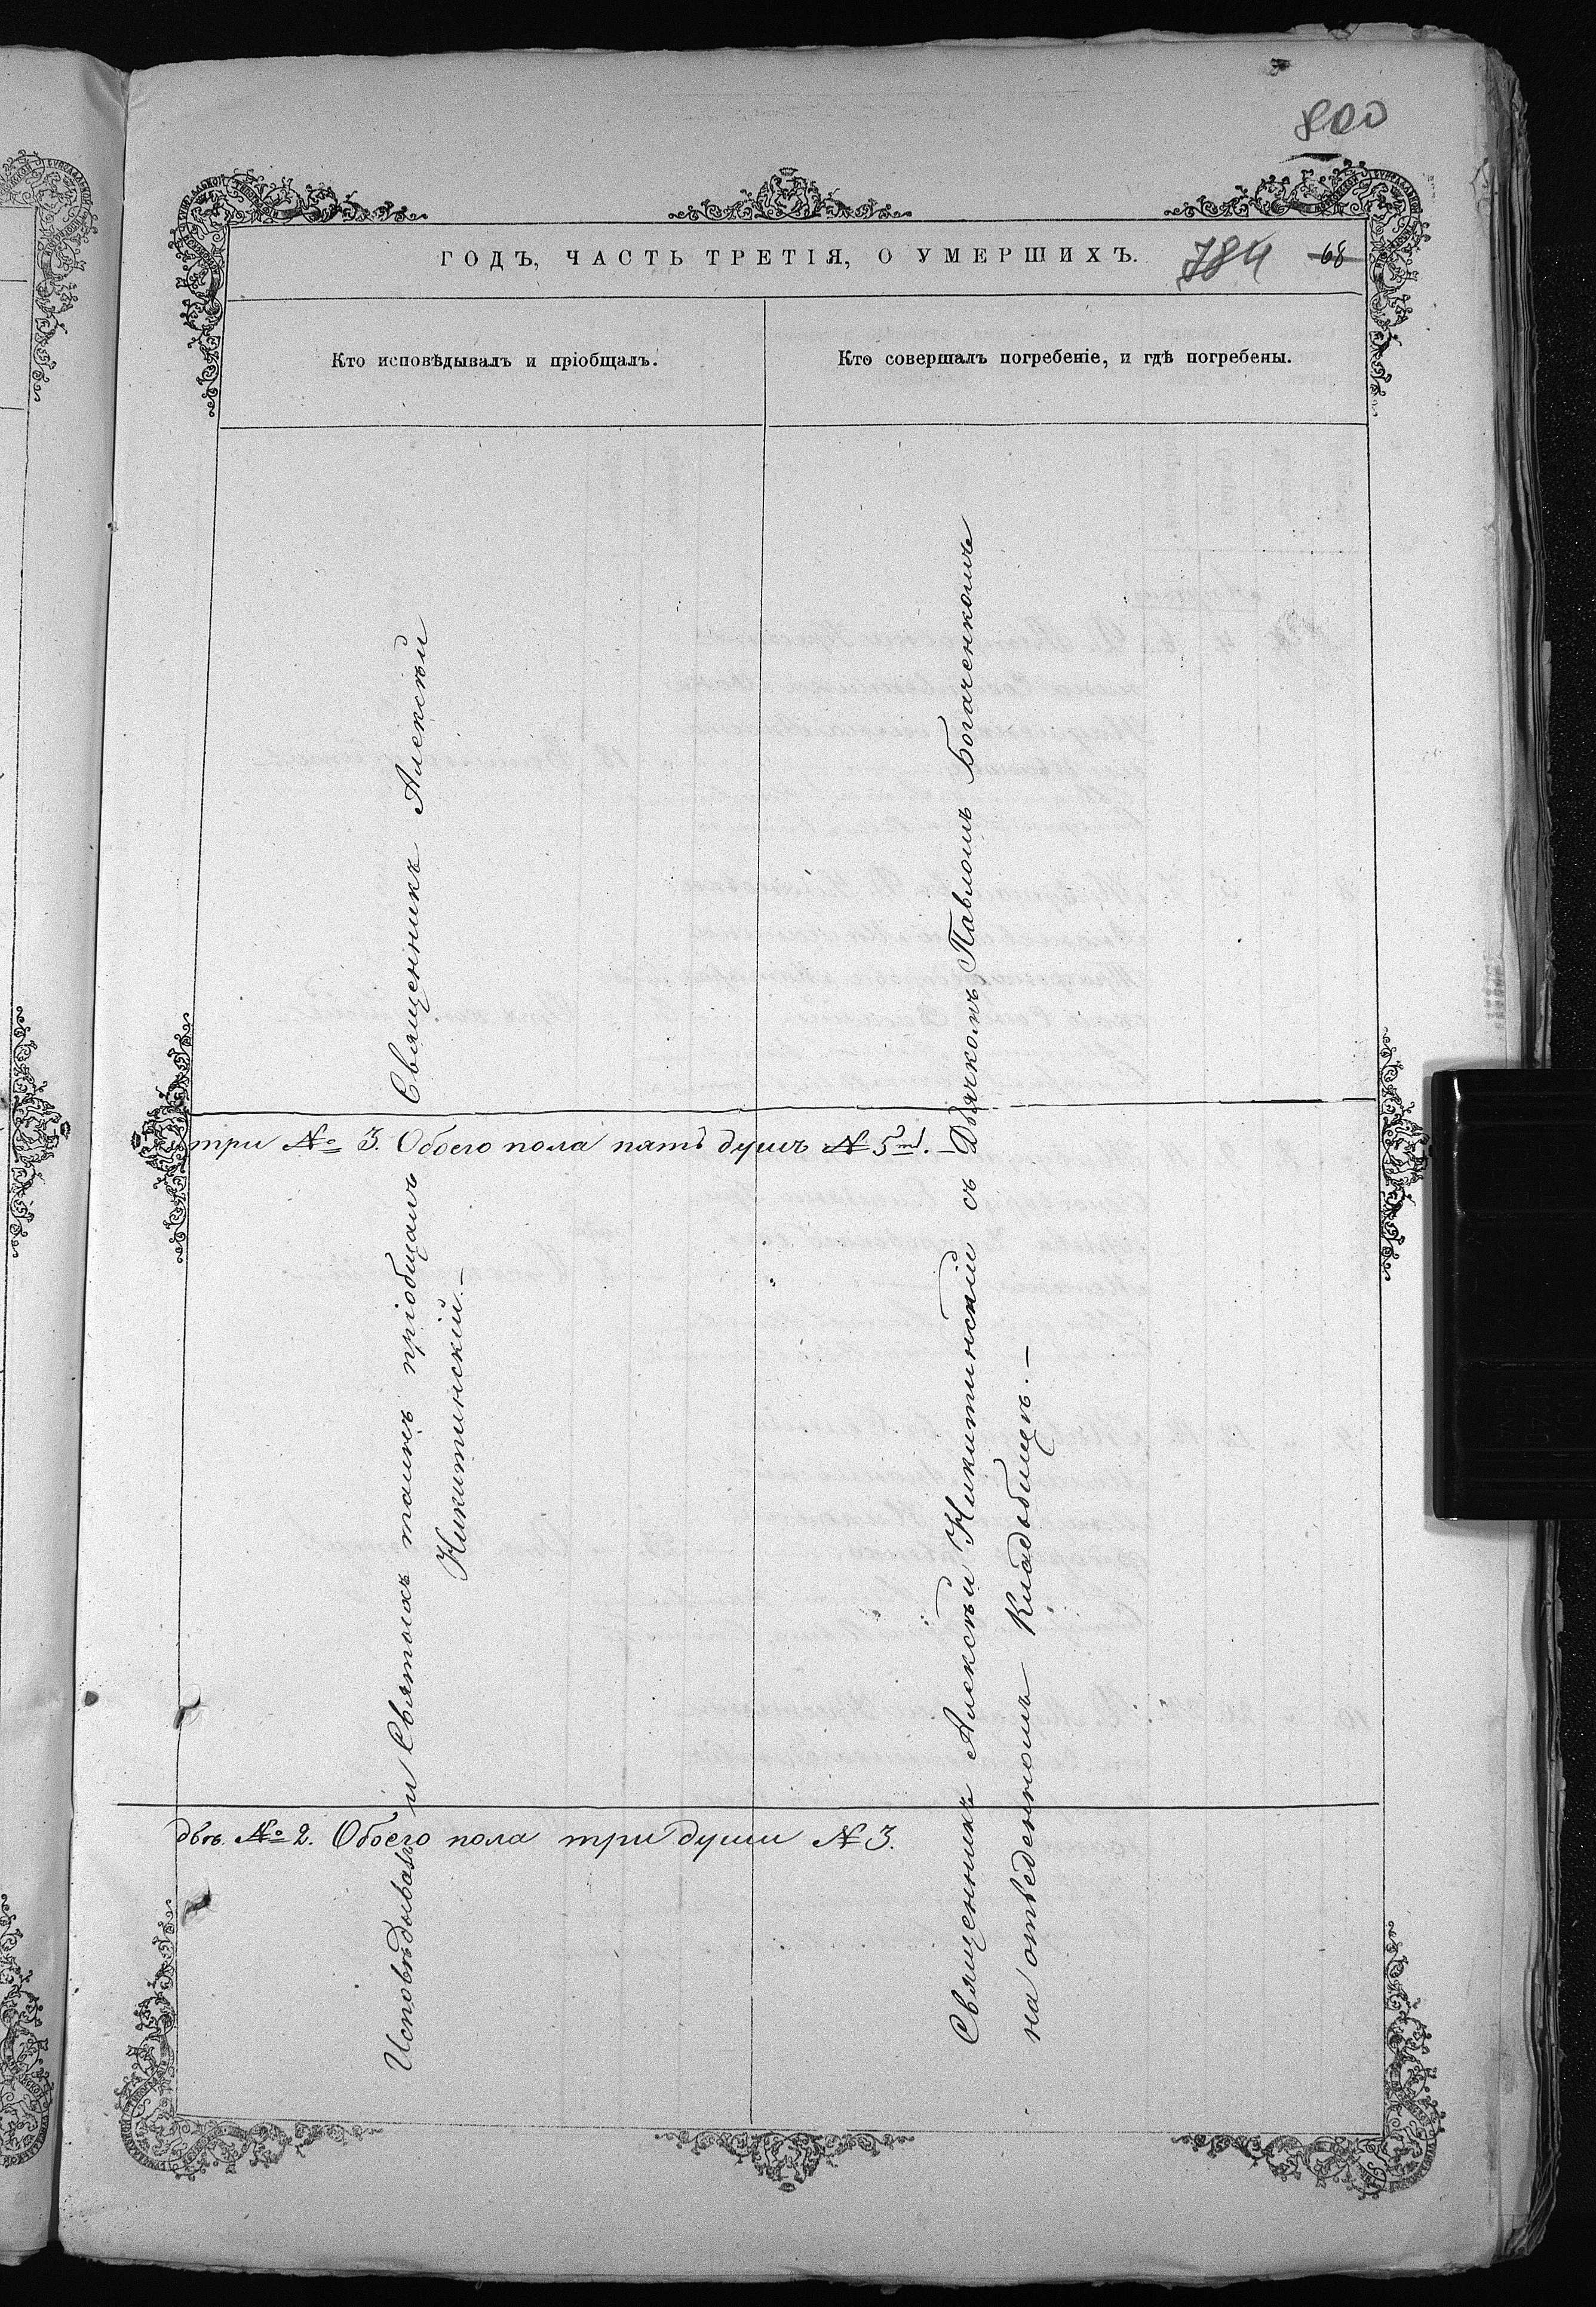 800
ГОДЪ, ЧАСТЬ ТРЕТІЯ, О УМЕРШИХЪ.
784
68
Кто исповѣдывалъ и пріобщалъ.
Кто совершалъ погребеніе, и гдѣ погребены.
Исповѣдывалъ и Святыхъ таинъ пріобщалъ Священникъ Алексѣй
Никитинскій.—
Священникъ Алексѣй Никитинскій съ Дьячкомъ Павломъ Богаченкомъ
на отведенномъ кладбищѣ.—
три № 3. Обоего пола пять душъ № 5ть.—
двѣ № 2. Обоего пола три души № 3.